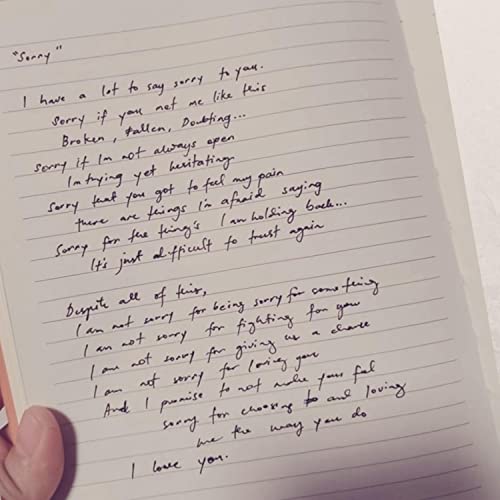 "Sorry"
I have a lot to say sorry to you.
Sorry if you met me like this
Broken, Fallen, Doubting...
sorry if Im not always open
Im trying yet hesitating
sorry that you got to feel my pain
there are things I'm afraid saying
Sorry for the thing's I am holding back...
It's just difficult to trust again
Despite all of this,
I am not sorry for being sorry for something
I am not sorry for fighting for you
I am not sorry for giving us a chance
I am not sorry for loving you
And I promise to not make you feel
sorry for choosing to and loving
me the way you do
I love you.